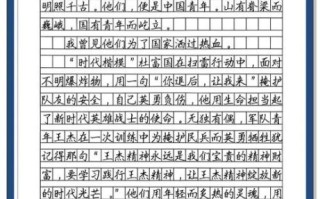 明照千古。他们，便是中国青年。山有脊梁而
巍峨，国有青年而屹立。
我曾见他们为了国家洒过热血。
“时代楷模”杜富国在扫雷行动中，面对
不明爆炸物，用一句“你退后，让我来”掩护
队友的安全，自己英勇负伤，他用生命担当起
了新时代英雄战士的使命。无独有偶，军队青
年王杰在一次训练中为掩护民兵而英勇牺牲犹
记得那句“王杰精神永远是我们宝贵的精神财
富，要学习践行王杰精神，让王杰精神绽放新
的时代光芒。”他们用年轻而炙热的灵魂，用